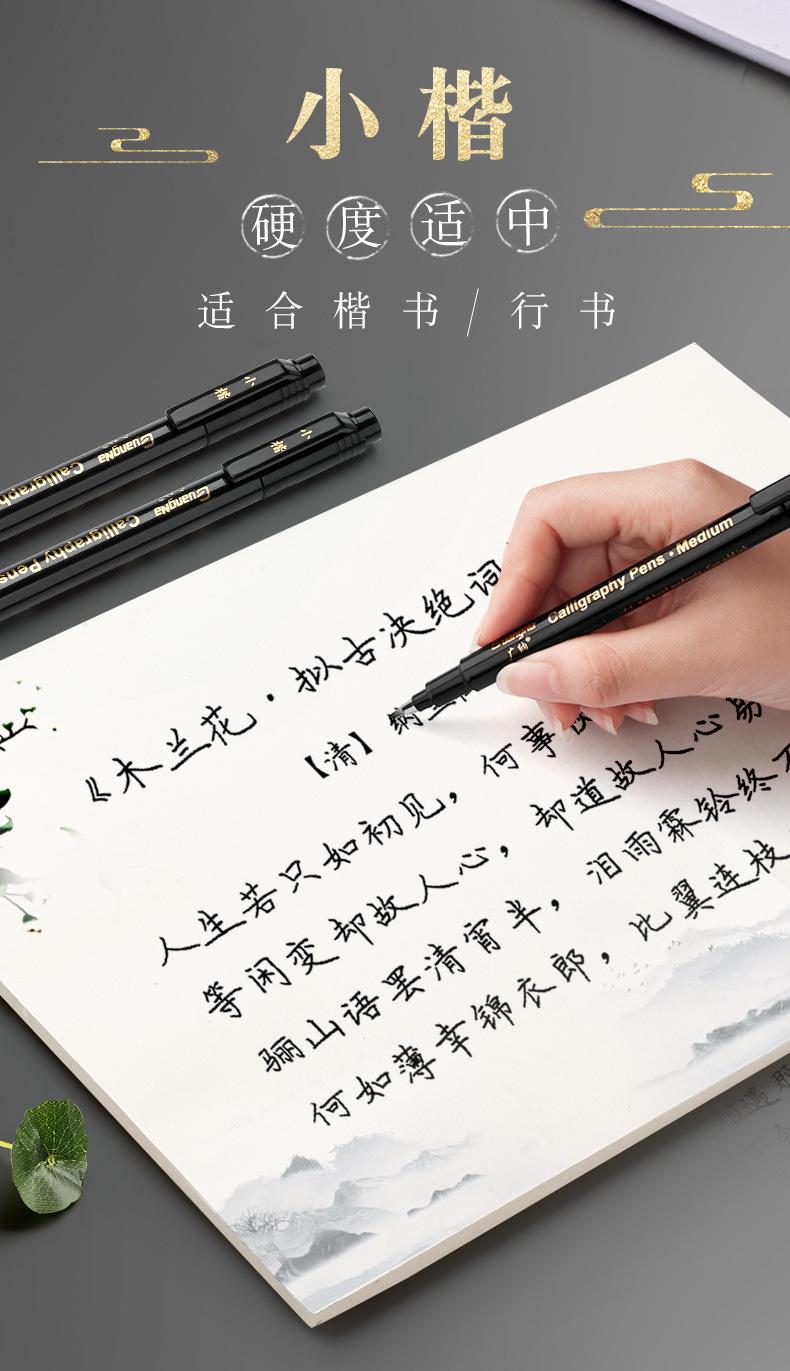 小楷
硬度适中
适合楷书/行书
小楷
GuangNa
Calligraph
小楷
GuangNa
Calligraphy Pens
Calligraphy Pens•Medium
广纳®
《木兰花·拟古决绝词
【清】纳兰
人生若只如初见，何事秋
等闲变却故人心，却道故人心易
骊山语罢清宵半，泪雨霖铃终不
何如薄幸锦衣郎，比翼连枝
相遇